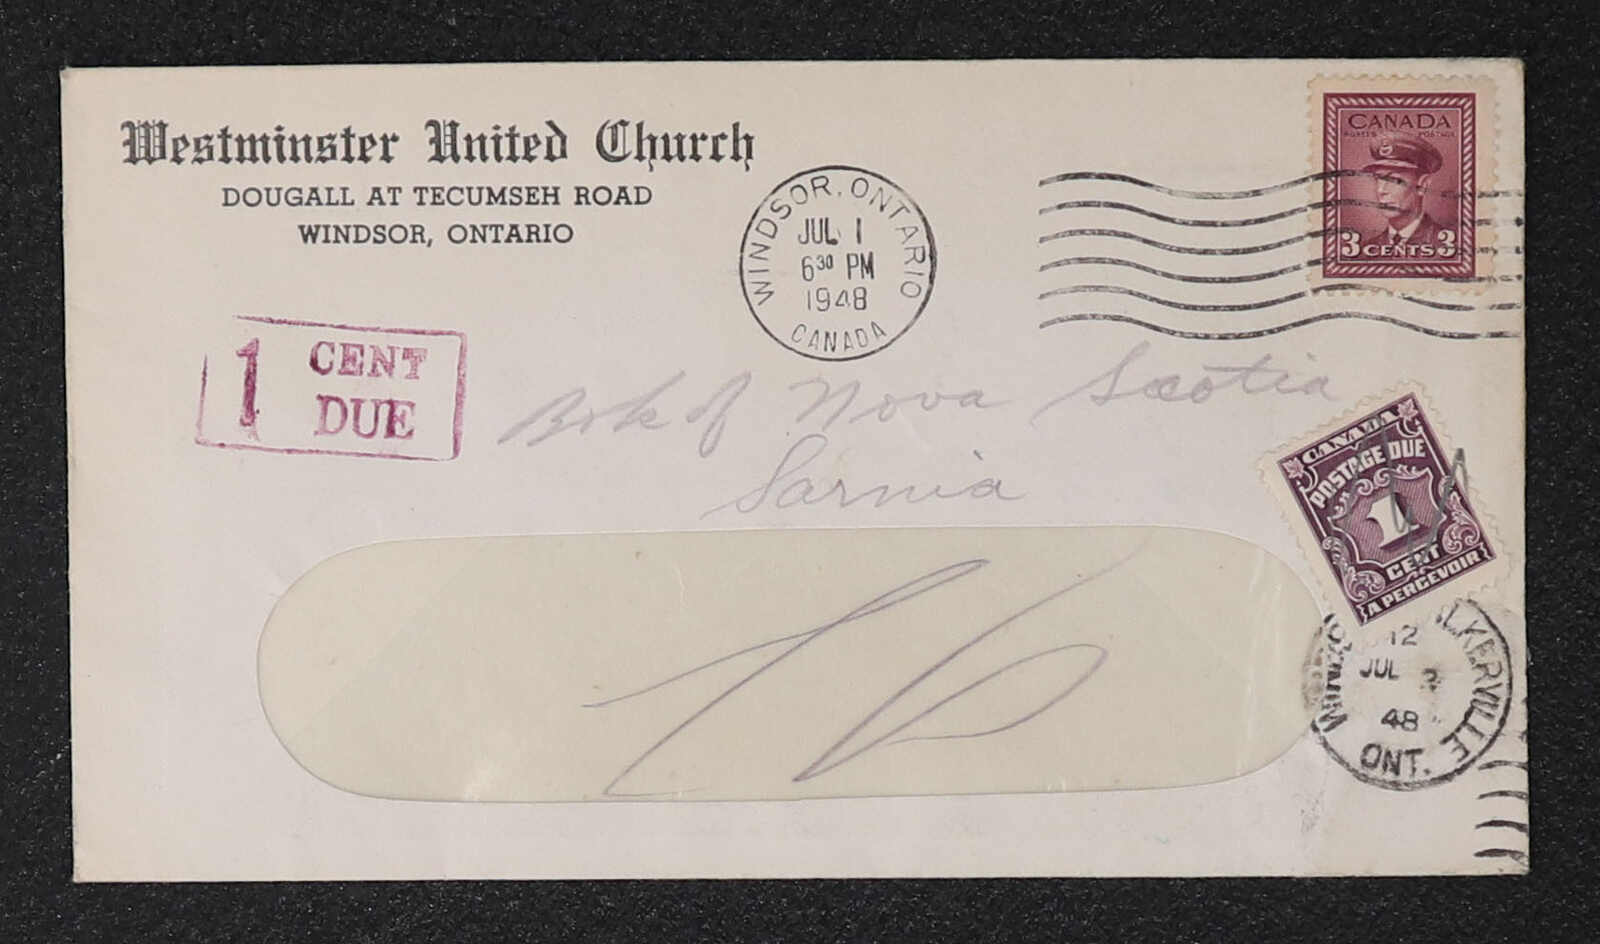 Westminster United Church
DOUGALL AT TECUMSEH ROAD
WINDSOR, ONTARIO
WINDSOR, ONTARIO
JUL 1
6³⁰ PM
1948
CANADA
CANADA
POSTES POSTAGE
3 CENTS 3
1 CENT
DUE
Bnk of Nova Scotia
Sarnia
CANADA
POSTAGE DUE
1
CENT
A PERCEVOIR
WALKERVILLE
12
JUL
48
ONT.